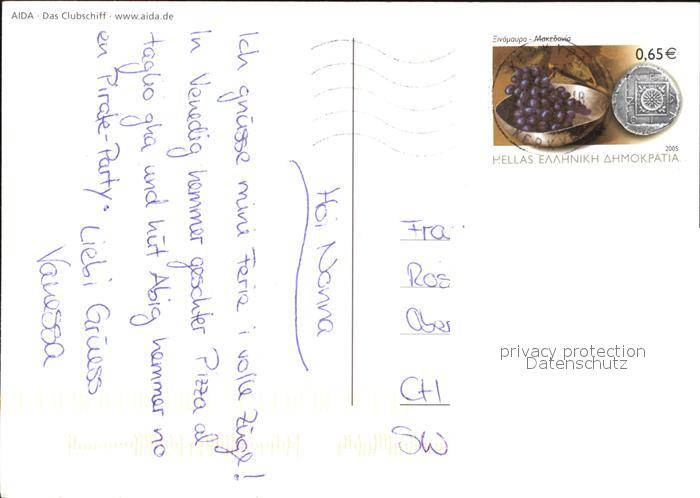 AIDA · Das Clubschiff · www.aida.de
Hoi Nonna
Ich grüsse mini Ferie i volle Züge!
In Venedig hemmer geschter Pizza al
taglio gha und hüt Abig hemmer no
en Pirate-Party. Liebi Grüess
Vanessa
Ξινόμαυρο - Μακεδονία
0,65€
2005
HELLAS ΕΛΛΗΝΙΚΗ ΔΗΜΟΚΡΑΤΙΑ
Fra
Ros
Ober
CH
SW
privacy protection
Datenschutz